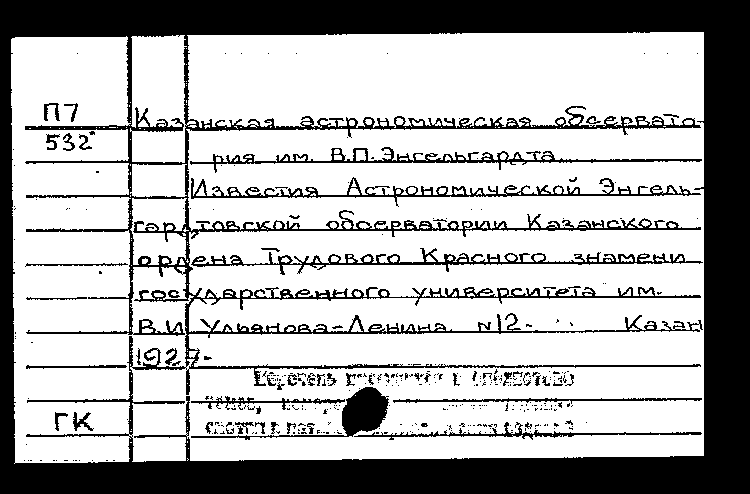 П7 Казанская астрономическая обсервато-
532 рия им. В.П.Энгельгардта.
Известия Астрономической Энгель-
гардтовской обсерватории Казанского
ордена Трудового Красного знамени
государственного университета им.
В.И. Ульянова-Ленина. N12- Казань
1927-
Перечень
томов,
ГК смотри в